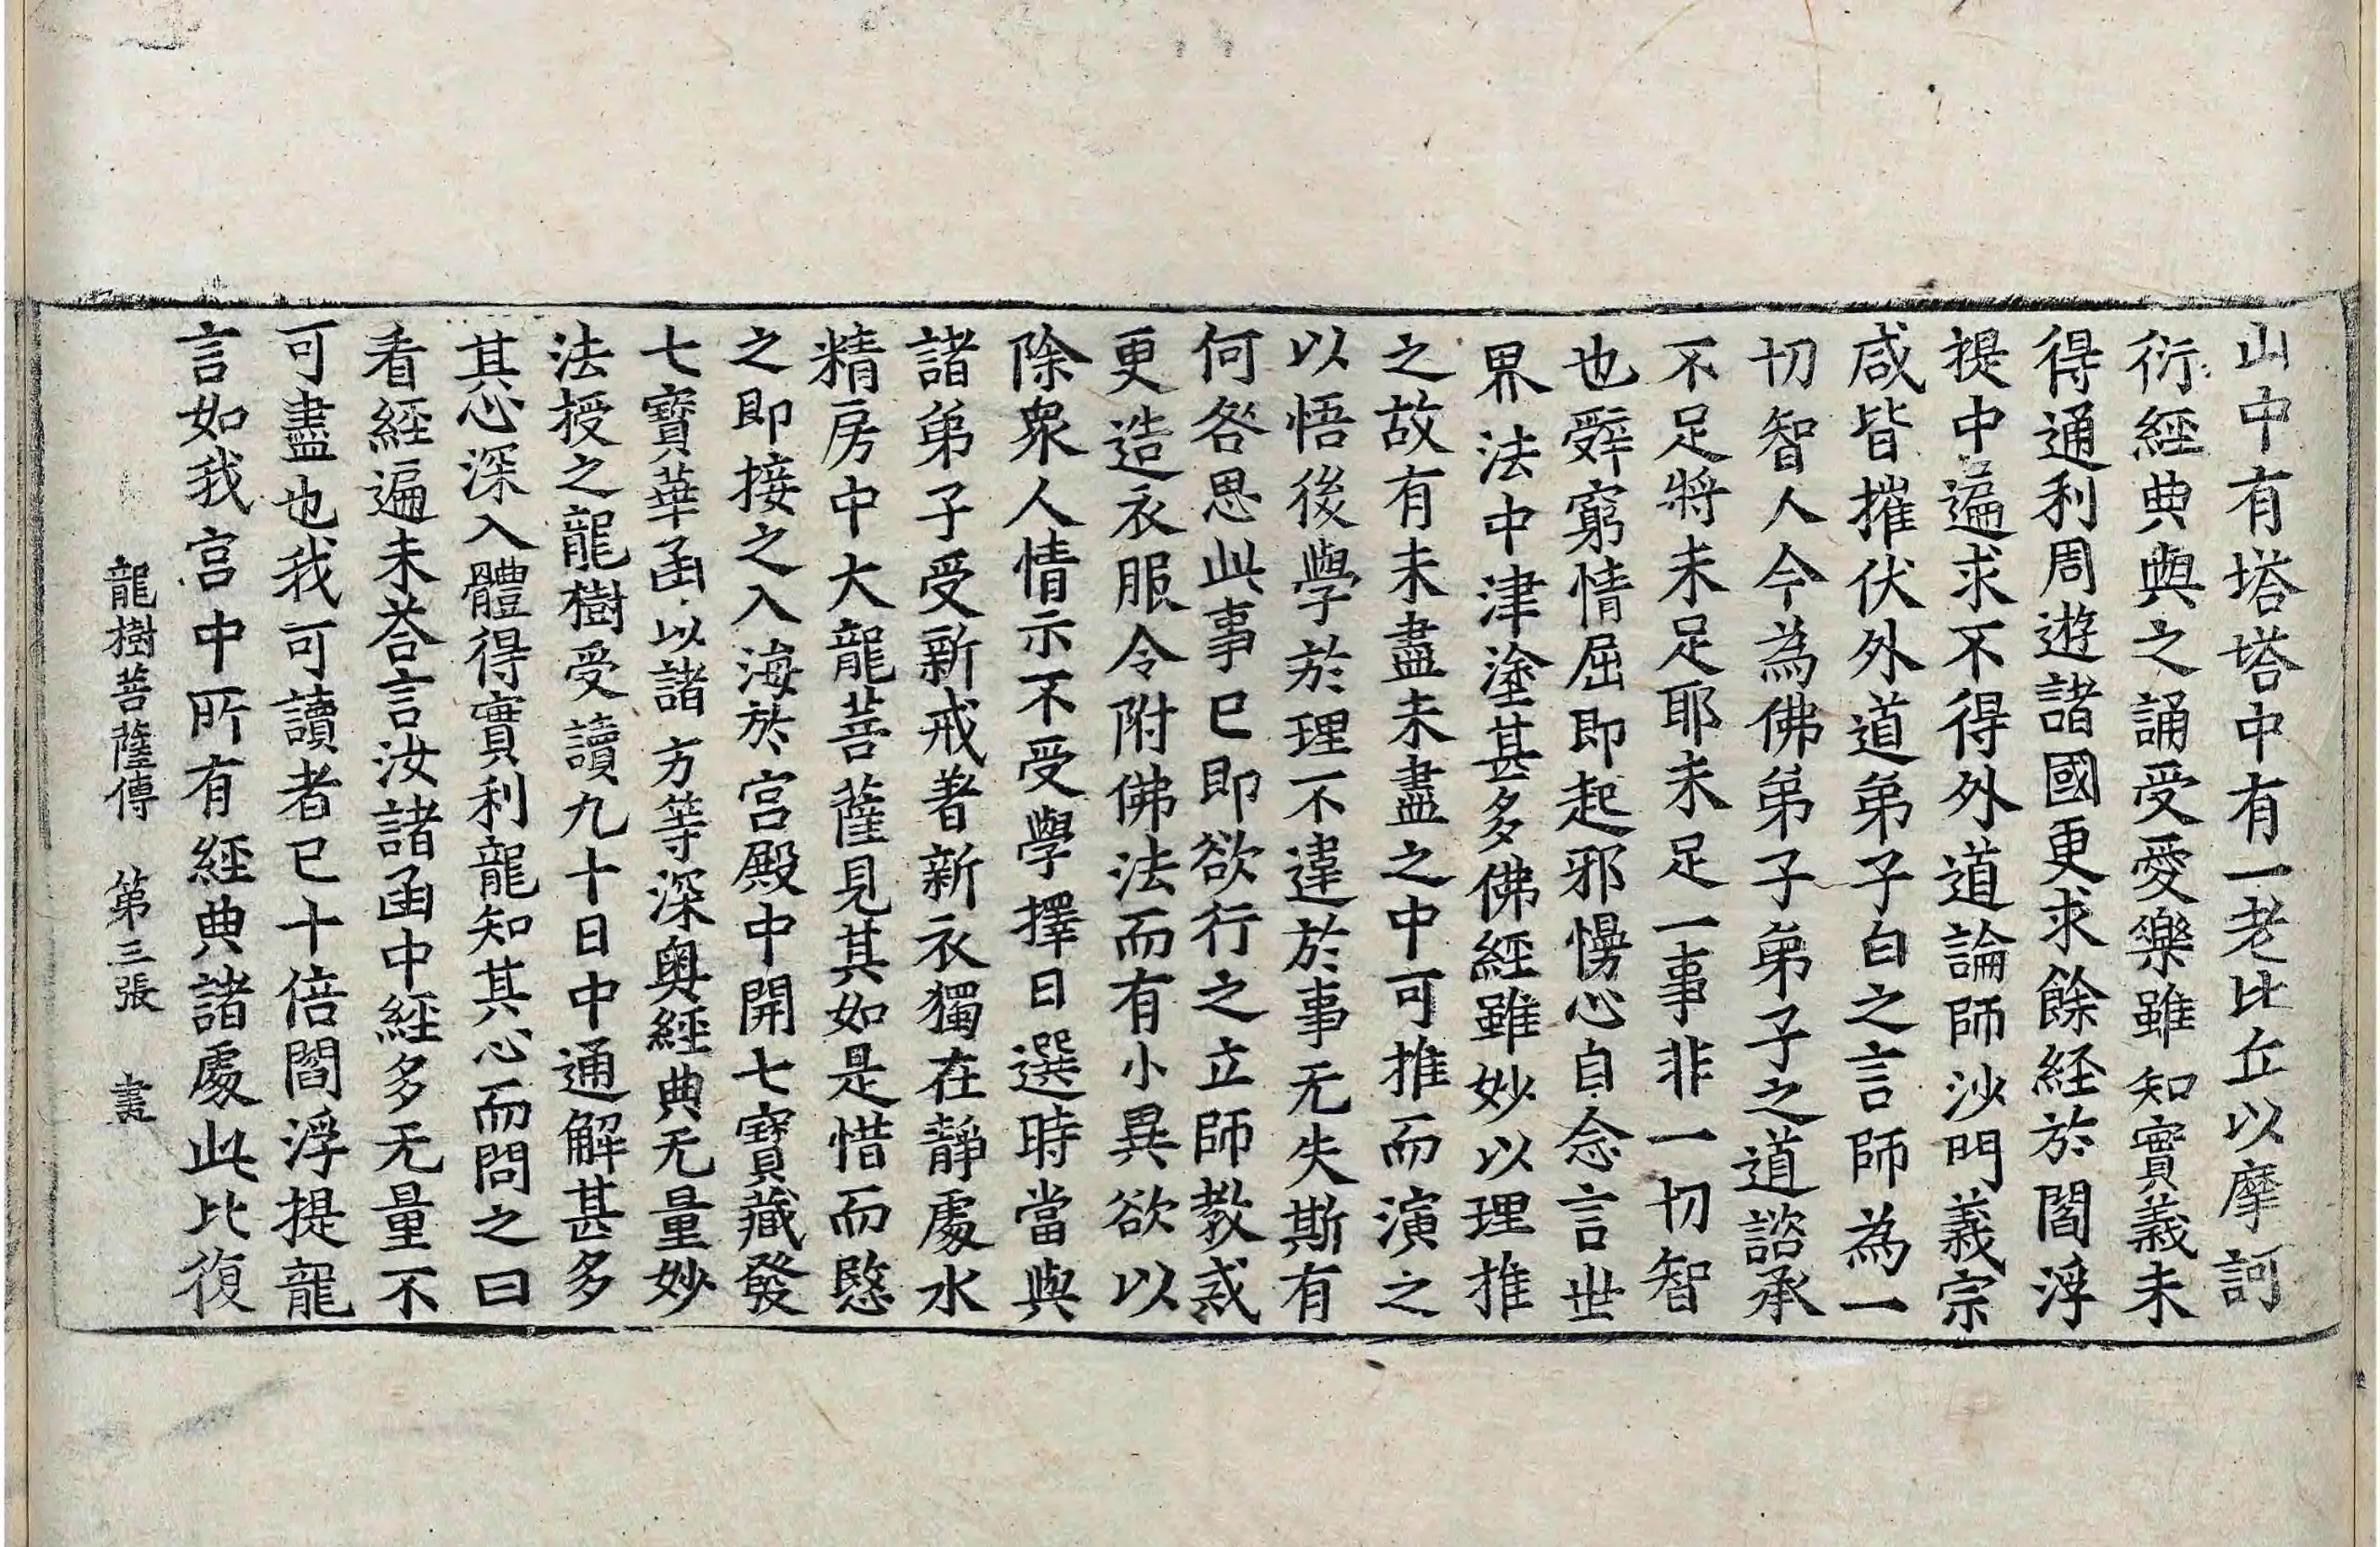 山中有塔塔中有一老比丘以摩訶
衍經典與之誦受愛樂雖知實義未
得通利周遊諸國更求餘經於閻浮
提中遍求不得外道論師沙門義宗
咸皆摧伏外道弟子白之言師為一
切智人今為佛弟子弟子之道諮承
不足將未足耶未足一事非一切智
也辭窮情屈即起邪慢心自念言世
界法中津塗甚多佛經雖妙以理推
之故有未盡未盡之中可推而演之
以悟後學於理不違於事无失斯有
何咎思此事已即欲行之立師教戒
更造衣服令附佛法而有小異欲以
除衆人情示不受學擇日選時當與
諸弟子受新戒著新衣獨在靜處水
精房中大龍菩薩見其如是惜而愍
之即接之入海於宮殿中開七寶藏發
七寶華函以諸方等深奧經典无量妙
法授之龍樹受讀九十日中通解甚多
其心深入體得實利龍知其心而問之曰
看經遍未荅言汝諸函中經多无量不
可盡也我可讀者已十倍閻浮提龍
言如我宮中所有經典諸處此比復
龍樹菩薩傳 第三張 畫